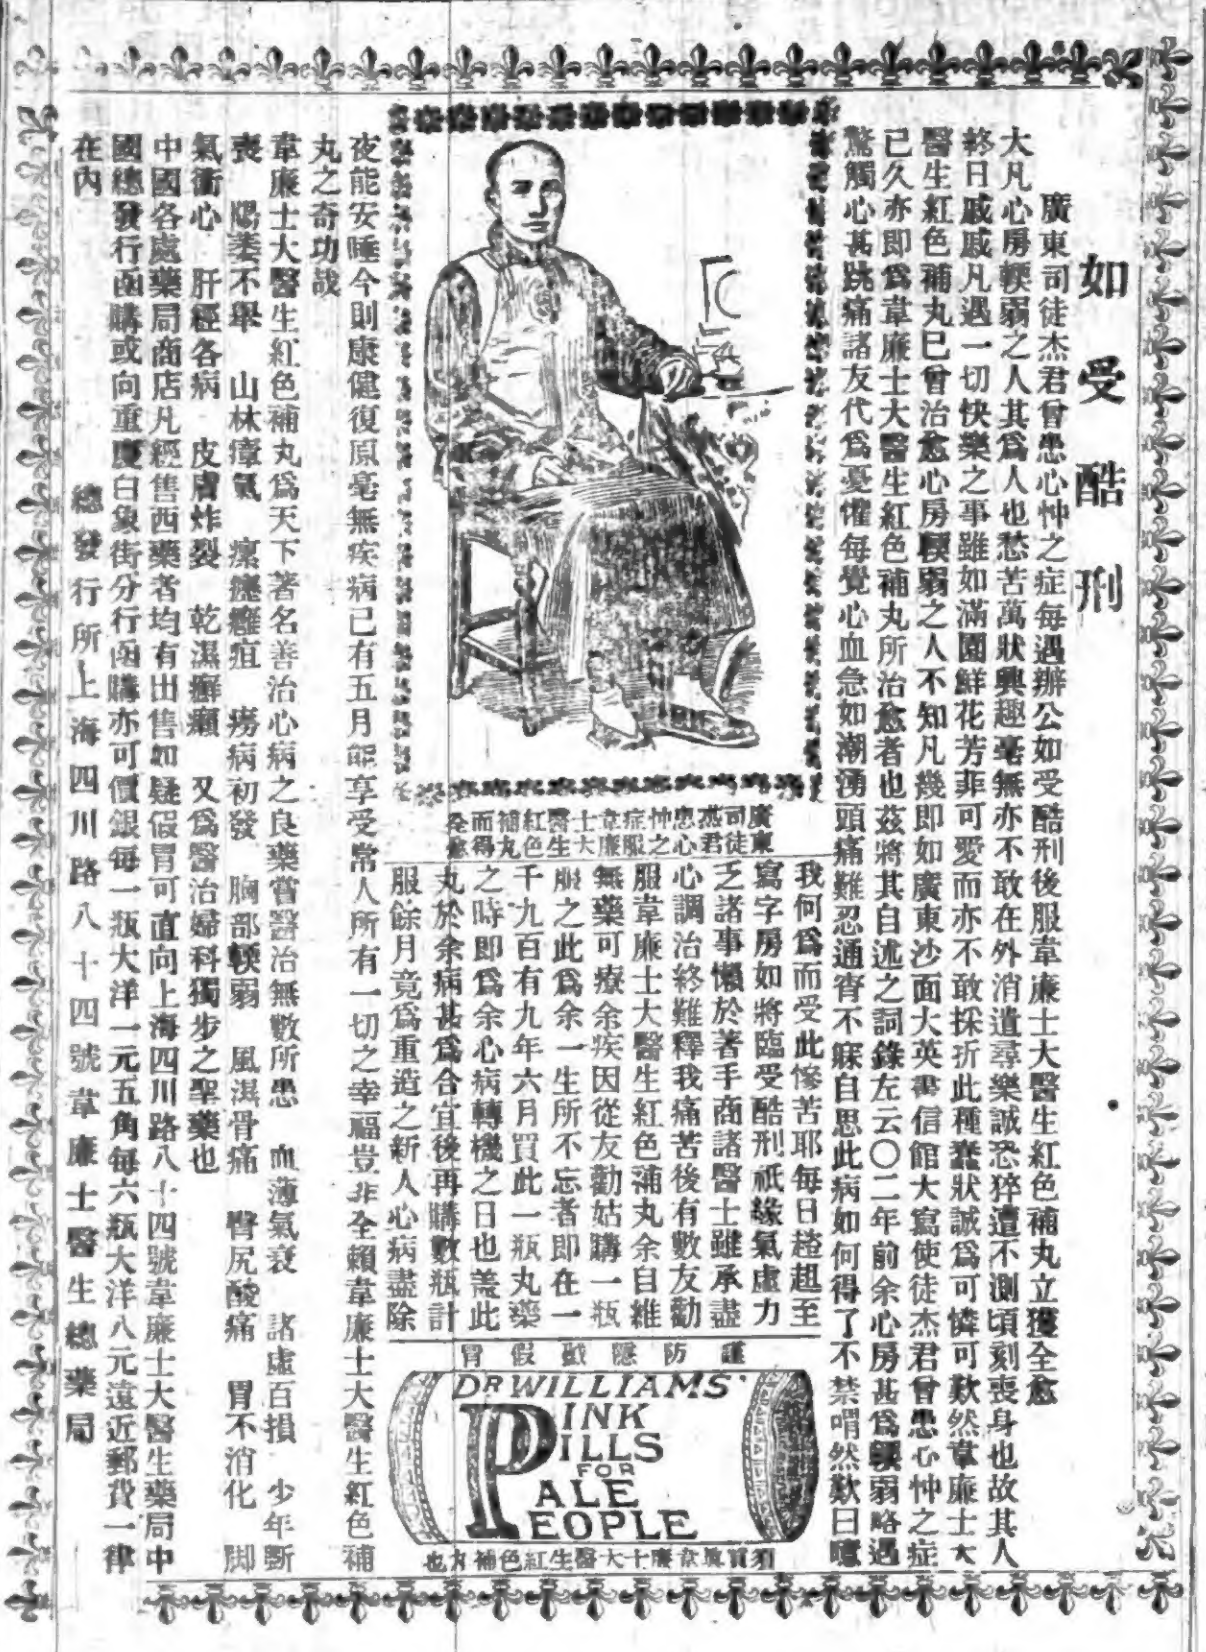 如受酷刑
廣東司徒杰君曾患心忡之症每遇辦公如受酷刑後服韋廉士大醫生紅色補丸立獲全愈
大凡心房輭弱之人其爲人也愁苦萬狀興趣毫無亦不敢在外消遣尋樂誠恐猝遭不測頃刻喪身也故其人
終日戚戚凡遇一切快樂之事雖如滿園鮮花芳菲可愛而亦不敢採折此種蠢狀誠爲可憐可歎然韋廉士大
醫生紅色補丸已曾治愈心房輭弱之人不知凡幾即如廣東沙面大英書信館大寫使徒杰君曾患心忡之症
已久亦即爲韋廉士大醫生紅色補丸所治愈者也茲將其自述之詞錄左云〇二年前余心房甚爲輭弱略遇
驚觸心甚跳痛諸友代爲憂懼每覺心血急如潮湧頭痛難忍通宵不寐自思此病如何得了不禁喟然歎曰噫
廣東
司徒
杰君
患心
忡之
症服
韋廉
士大
醫生
紅色
補丸
而得
全愈
我何爲而受此慘苦耶每日趑趄至
寫字房如將臨受酷刑祇緣氣虛力
乏諸事懶於著手商諸醫士雖承盡
心調治終難釋我痛苦後有數友勸
服韋廉士大醫生紅色補丸余自維
無藥可療余疾因從友勸姑購一瓶
服之此爲余一生所不忘者即在一
千九百有九年六月買此一瓶丸藥
之時即爲余心病轉機之日也蓋此
丸於余病甚爲合宜後再購數瓶計
服餘月竟爲重造之新人心病盡除
謹防隱戤假冒
DR WILLIAMS'
PINK
PILLS
FOR
PALE
PEOPLE
須實眞韋廉士大醫生紅色補丸也
夜能安睡今則康健復原毫無疾病已有五月能享受常人所有一切之幸福豈非全賴韋廉士大醫生紅色補
丸之奇功哉
韋廉士大醫生紅色補丸爲天下著名善治心病之良藥嘗醫治無數所患 血薄氣衰 諸虛百損 少年斷
喪 陽萎不舉 山林瘴氣 瘰癧癰疽 癆病初發 胸部輭弱 風濕骨痛 臀尻酸痛 胃不消化 脚
氣衝心 肝經各病 皮膚炸裂 乾濕癬癩 又爲醫治婦科獨步之聖藥也
中國各處藥局商店凡經售西藥者均有出售如疑假冒可直向上海四川路八十四號韋廉士大醫生藥局中
國總發行函購或向重慶白象街分行函購亦可價銀每一瓶大洋一元五角每六瓶大洋八元遠近郵費一律
在內
總發行所上海四川路八十四號韋廉士醫生總藥局